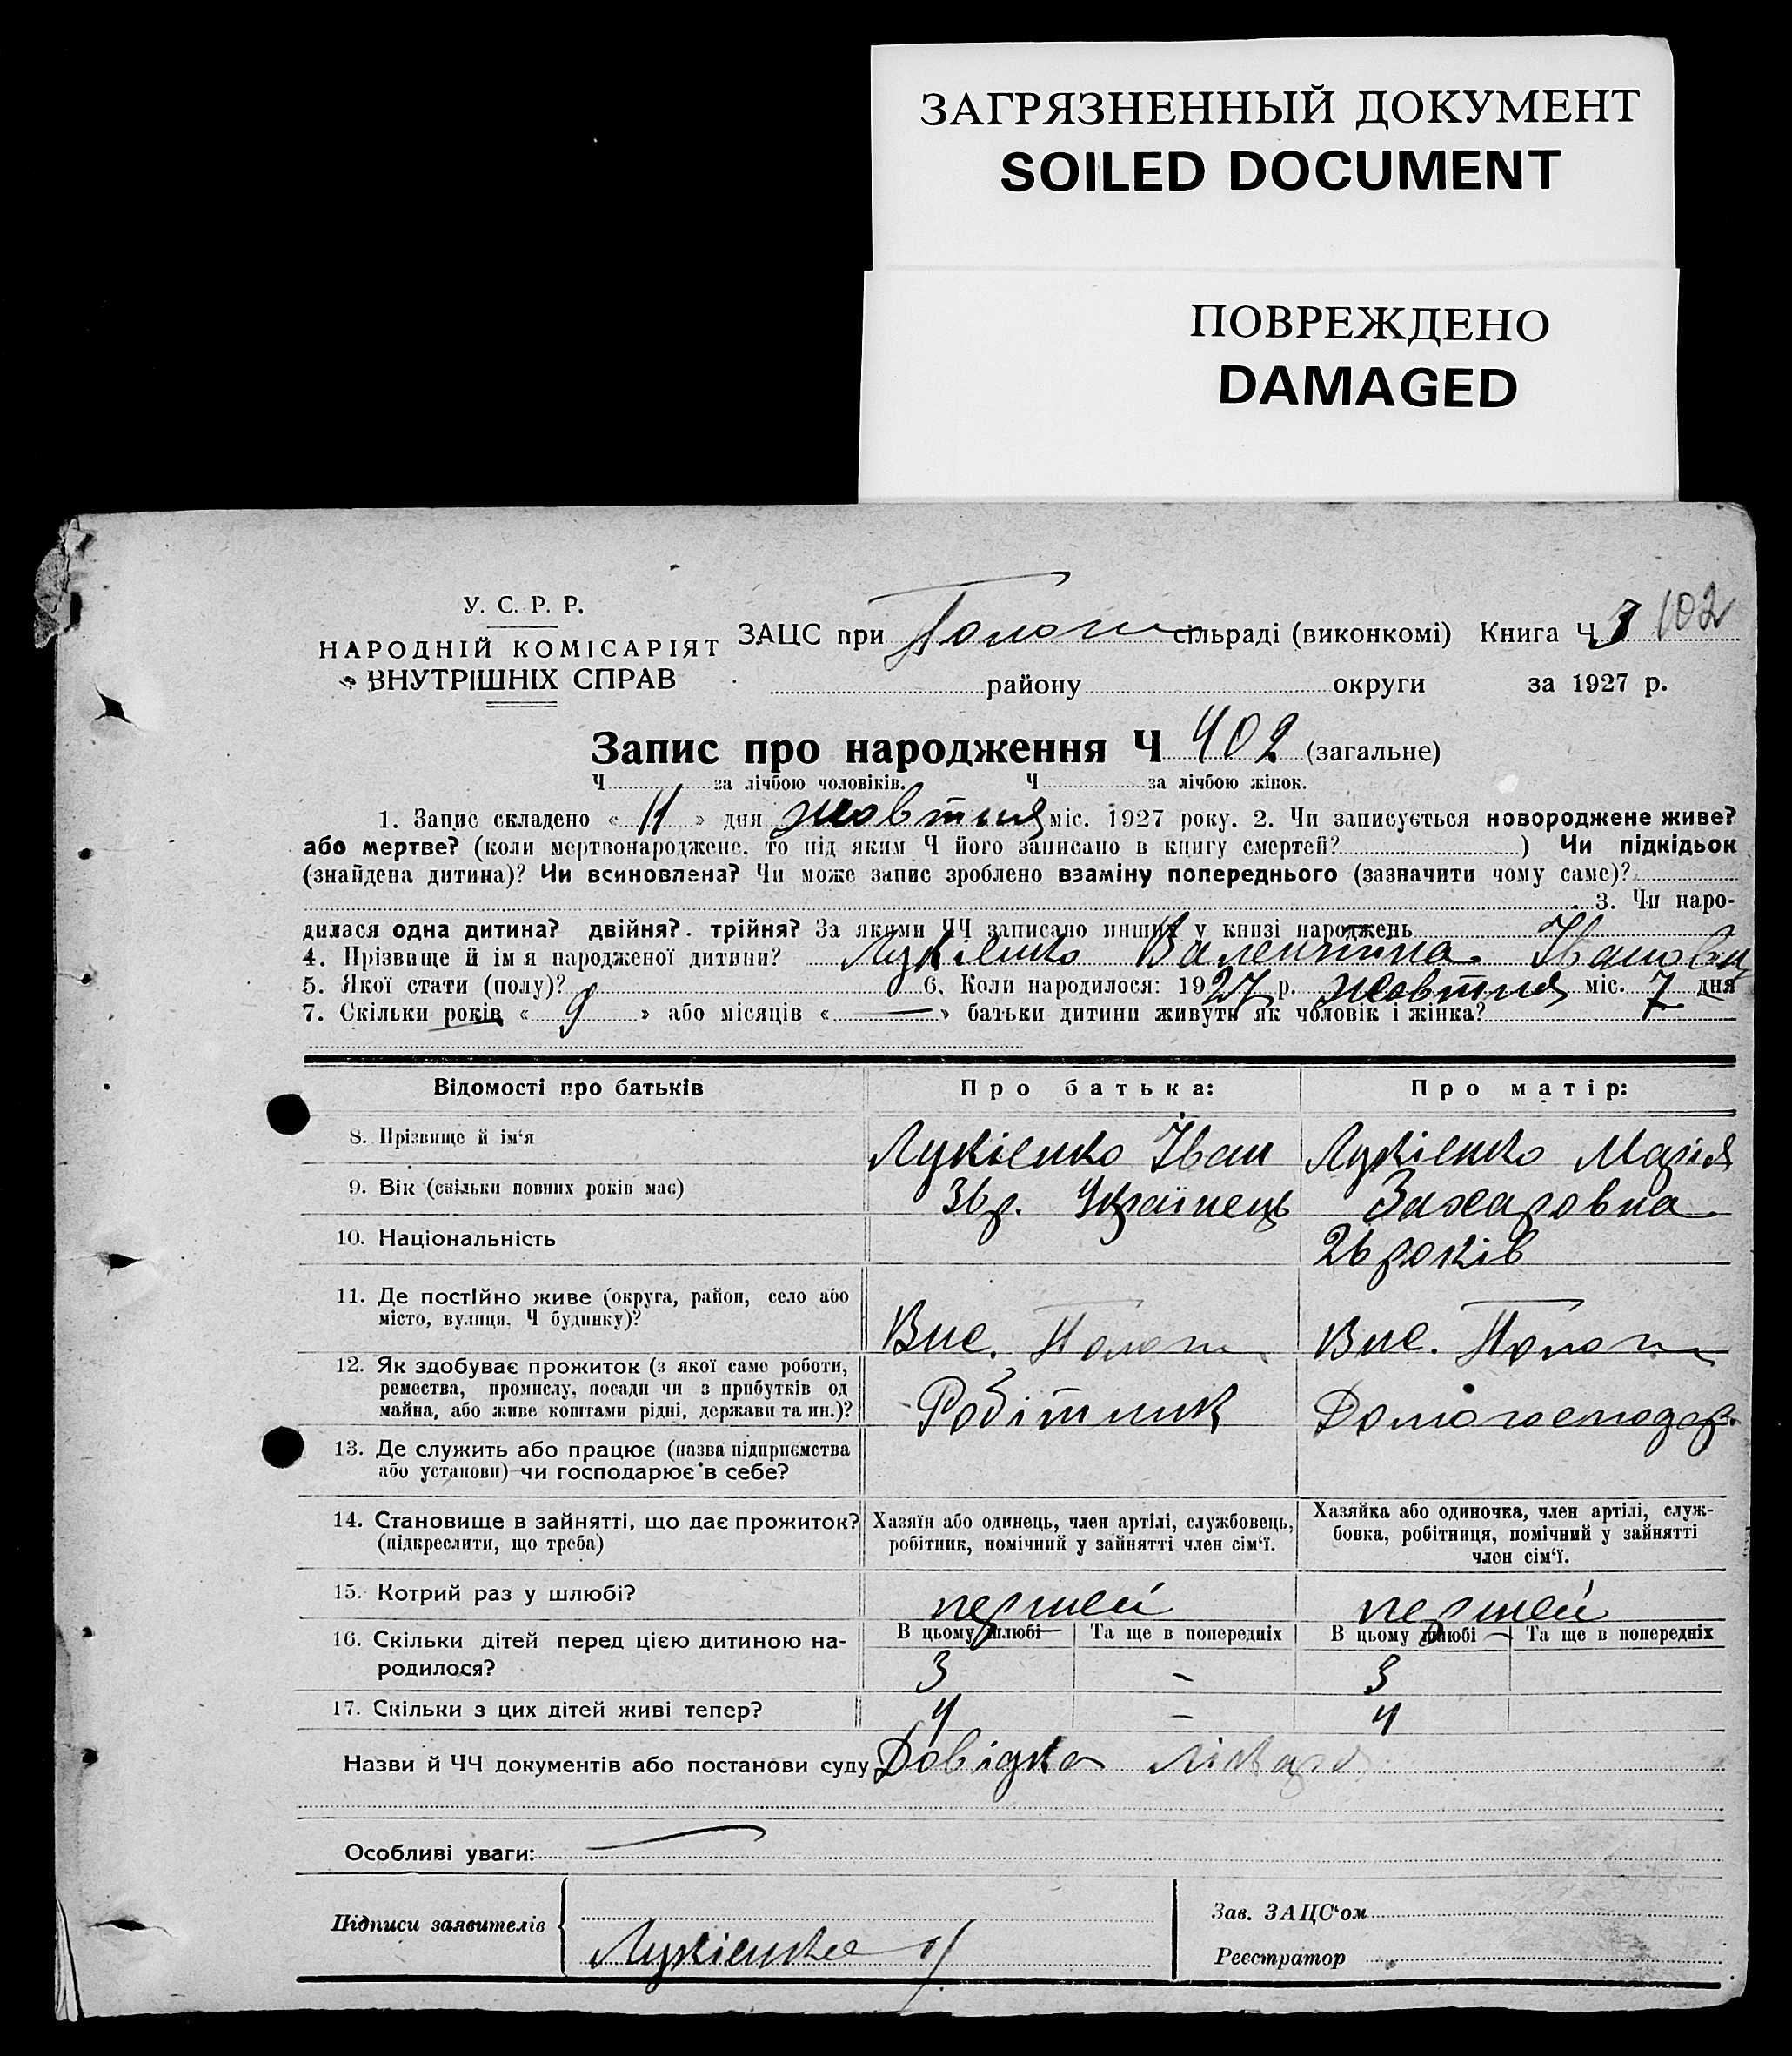 ЗАГРЯЗНЕННЫЙ ДОКУМЕНТ
SOILED DOCUMENT
ПОВРЕЖДЕНО
DAMAGED
У. С. Р. Р.
НАРОДНІЙ КОМІСАРІЯТ
ВНУТРІШНІХ СПРАВ
ЗАЦС при Пологи сільраді (виконкомі) Книга Ч 3 102
району округи за 1927 р.
Запис про народження Ч 402 (загальне)
Ч за лічбою чоловіків. Ч за лічбою жінок.
1. Запис складено « 11 » дня жовтня міс. 1927 року. 2. Чи записується новороджене живе?
або мертве? (коли мертвонароджене, то під яким Ч його записано в книгу смертей? ) Чи підкідьок
(знайдена дитина)? Чи всиновлена? Чи може запис зроблено взаміну попереднього (зазначити чому саме)?
3. Чи наро-
дилася одна дитина? двійня? трійня? За якими ЧЧ записано инших у книзі народжень
4. Прізвище й ім я народженої дитини? Лукієнко Валентина
5. Якої стати (полу)? 6. Коли народилося: 1927 р. жовтня міс. 7 дня
7. Скільки років « 9 » або місяців « — » батьки дитини живуть як чоловік і жінка?
Відомості про батьків Про батька: Про матір:
8. Прізвище й ім'я Лукієнко Іван Лукієнко Марія
9. Вік (скільки повних років має) 36 р. Українець Захаровна
10. Національність 26 років
11. Де постійно живе (округа, район, село або
місто, вулиця, Ч будинку)? Вис. Пологи Вис. Пологи
12. Як здобуває прожиток (з якої саме роботи,
ремества, промислу, посади чи з прибутків од
майна, або живе коштами рідні, держави та ин.)? Робітник Домогосподар.
13. Де служить або працює (назва підприємства
або установи) чи господарює в себе?
14. Становище в зайнятті, що дає прожиток?
(підкреслити, що треба)
Хазяїн або одинець, член артілі, службовець,
робітник, помічний у зайнятті член сім'ї.
Хазяйка або одиночка, член артілі, служ-
бовка, робітниця, помічний у зайнятті
член сім'ї.
15. Котрий раз у шлюбі? першей першей
16. Скільки дітей перед цією дитиною на-
родилося?
В цьому шлюбі Та ще в попередніх В цьому шлюбі Та ще в попередніх
3 – 3
17. Скільки з цих дітей живі тепер? 4 – 4
Назви й ЧЧ документів або постанови суду Довідка лікаря
Особливі уваги:
Підписи заявителів
Лукієнко
Зав. ЗАЦС'ом
Реєстратор